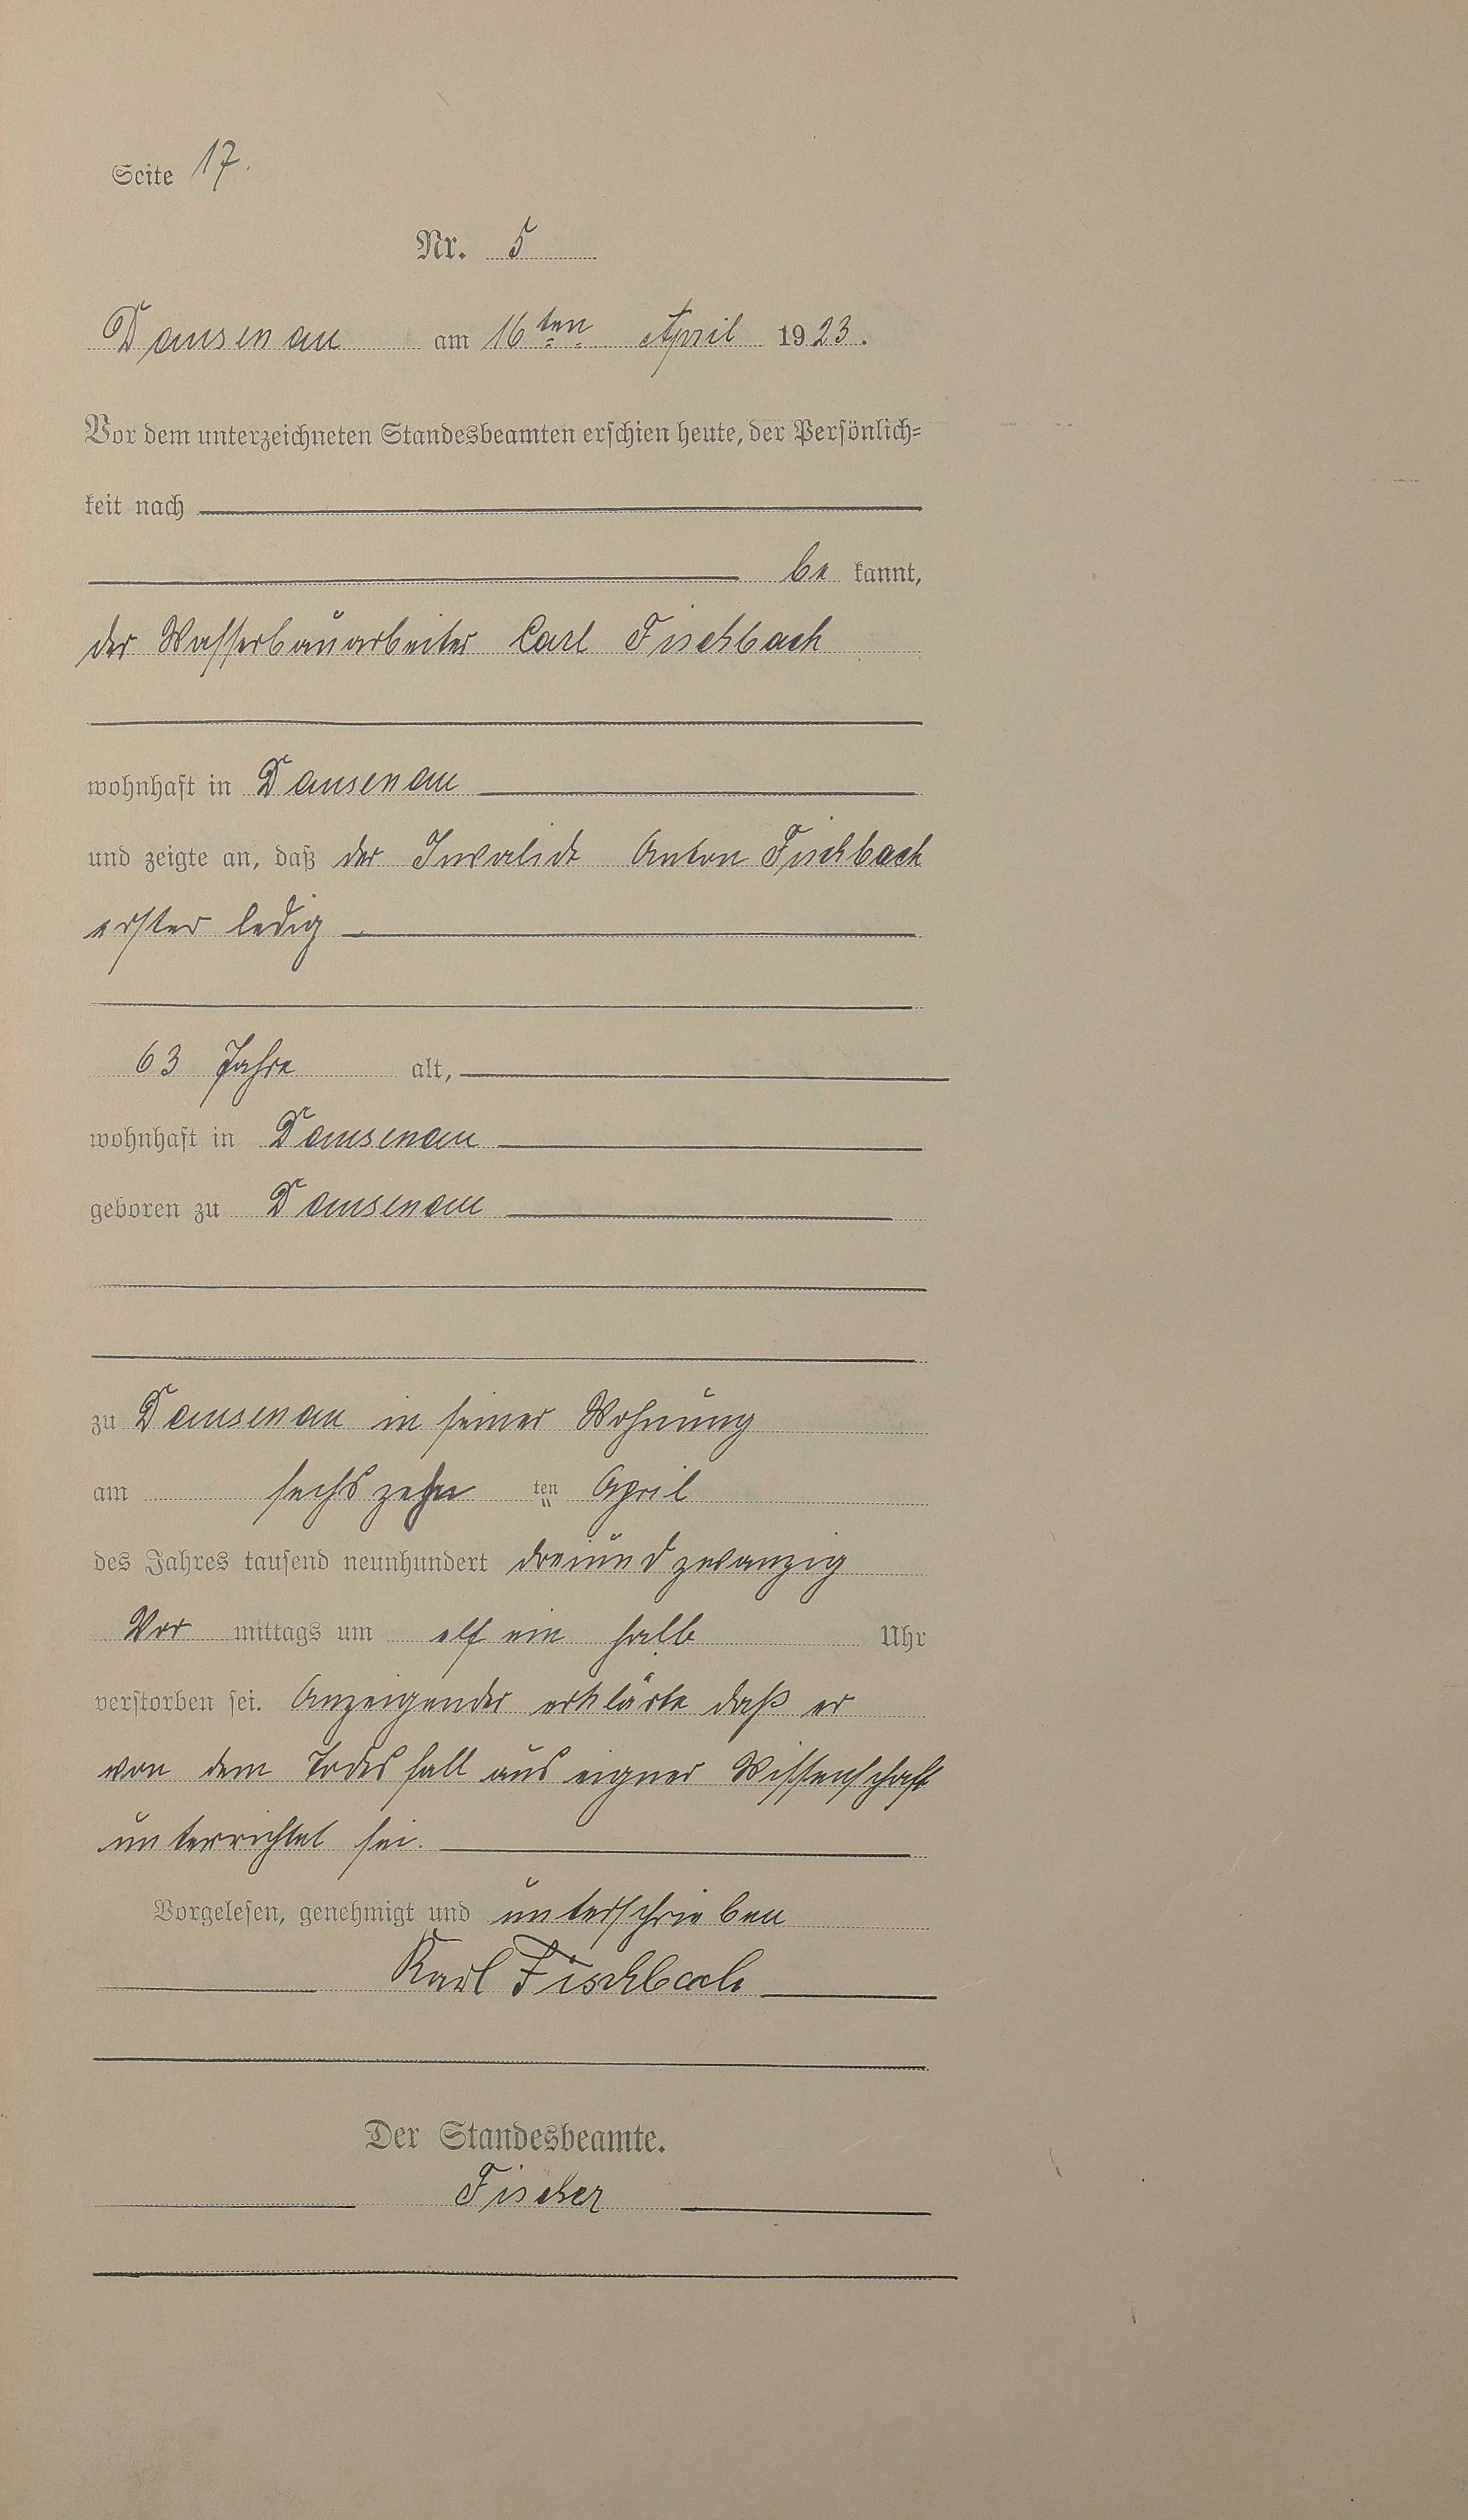 Seite 17.
Nr. 5
Dausenau am 16ten April 1923.
Vor dem unterzeichneten Standesbeamten erschien heute, der Persönlich-
keit nach
be kannt,
der Wasserbauarbeiter Carl Fischbach
wohnhaft in Dausenau
und zeigte an, daß der Invalide Anton Fischbach
erster ledig
63 Jahre alt,
wohnhaft in Dausenau
geboren zu Dausenau
zu Dausenau in seiner Wohnung
am sechszehn ten April
des Jahres tausend neunhundert dreiundzwanzig
Vor mittags um elf ein halb Uhr
verstorben sei. Anzeigender erklärte daß er
von dem Todesfall aus eigner Wissenschaft
unterrichtet sei.
Vorgelesen, genehmigt und unterschrieben
Karl Fischbach
Der Standesbeamte.
Fischer